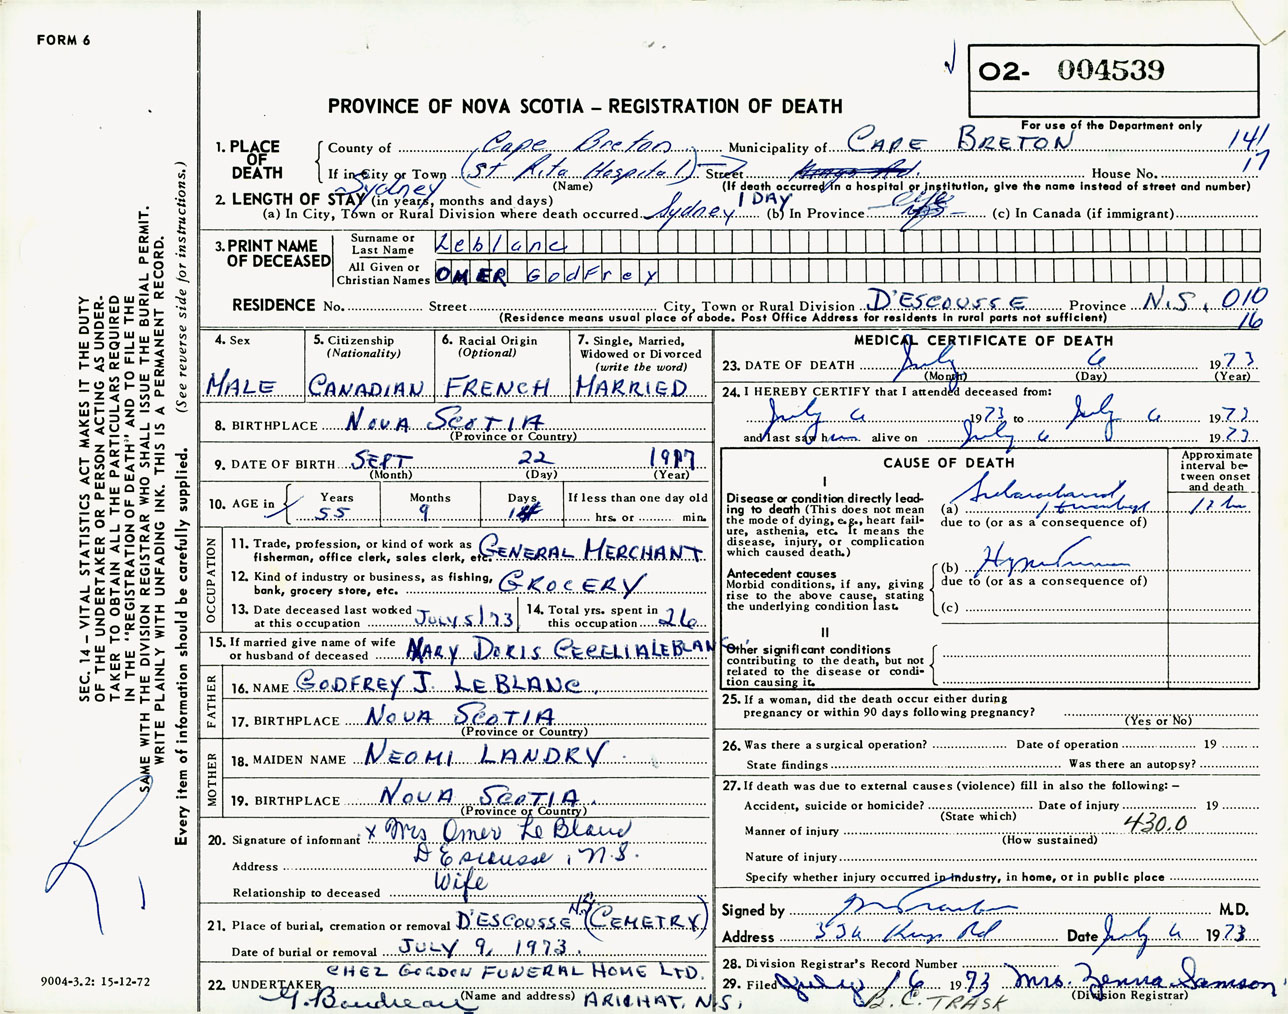 FORM 6
O2- 004539
PROVINCE OF NOVA SCOTIA – REGISTRATION OF DEATH
For use of the Department only
1. PLACE OF DEATH
County of Cape Breton Municipality of CAPE BRETON 141
If in City or Town (St Rita Hospital) Street House No. 17
Sydney
(Name) (If death occurred in a hospital or institution, give the name instead of street and number)
2. LENGTH OF STAY (in years, months and days)
(a) In City, Town or Rural Division where death occurred Sydney 1 DAY (b) In Province life (c) In Canada (if immigrant)
3. PRINT NAME OF DECEASED
Surname or Last Name Leblanc
All Given or Christian Names OMER Godfrey
RESIDENCE No. Street City, Town or Rural Division D'ESCOUSSE Province N.S. 010
(Residence means usual place of abode. Post Office Address for residents in rural parts not sufficient) 16
4. Sex
MALE
5. Citizenship (Nationality)
CANADIAN
6. Racial Origin (Optional)
FRENCH
7. Single, Married, Widowed or Divorced (write the word)
MARRIED
8. BIRTHPLACE NOVA SCOTIA
(Province or Country)
9. DATE OF BIRTH SEPT 22 1917
(Month) (Day) (Year)
10. AGE in Years Months Days If less than one day old
55 9 14 hrs. or min.
OCCUPATION
11. Trade, profession, or kind of work as fisherman, office clerk, sales clerk, etc. GENERAL MERCHANT
12. Kind of industry or business, as fishing, bank, grocery store, etc. GROCERY
13. Date deceased last worked at this occupation JULY 5/73
14. Total yrs. spent in this occupation 26
15. If married give name of wife or husband of deceased MARY DORIS CECELIA LEBLANC
FATHER
16. NAME GODFREY J. LE BLANC
17. BIRTHPLACE NOVA SCOTIA
(Province or Country)
MOTHER
18. MAIDEN NAME NEOMI LANDRY
19. BIRTHPLACE NOVA SCOTIA
(Province or Country)
20. Signature of informant x Mrs Omer Le Blanc
Address D'Escousse, N.S.
Relationship to deceased Wife
21. Place of burial, cremation or removal D'ESCOUSSE N.S. (CEMETRY)
Date of burial or removal JULY 9, 1973.
22. UNDERTAKER CHEZ GORDON FUNERAL HOME LTD.
G. Boudreau (Name and address) ARICHAT, N.S.
MEDICAL CERTIFICATE OF DEATH
23. DATE OF DEATH July 6 1973
(Month) (Day) (Year)
24. I HEREBY CERTIFY that I attended deceased from:
July 6 1973 to July 6 1973
and last saw him alive on July 6 1973
CAUSE OF DEATH
Approximate interval between onset and death
I
Disease or condition directly leading to death (This does not mean the mode of dying, e.g., heart failure, asthenia, etc. It means the disease, injury, or complication which caused death.)
(a) Subarachnoid Hemorrhage
due to (or as a consequence of)
Antecedent causes
Morbid conditions, if any, giving rise to the above cause, stating the underlying condition last.
(b) Hypertension
due to (or as a consequence of)
(c)
II
Other significant conditions contributing to the death, but not related to the disease or condition causing it.
25. If a woman, did the death occur either during pregnancy or within 90 days following pregnancy?
(Yes or No)
26. Was there a surgical operation? Date of operation 19
State findings Was there an autopsy?
27. If death was due to external causes (violence) fill in also the following: –
Accident, suicide or homicide? Date of injury 19
(State which) 430.0
Manner of injury
(How sustained)
Nature of injury
Specify whether injury occurred in industry, in home, or in public place
Signed by M.D.
Address 336 Kings Rd Date July 6 1973
28. Division Registrar's Record Number
29. Filed July 16 1973 Mrs. Zenna Samson
(Division Registrar)
B.C. TRASK
SEC. 14 – VITAL STATISTICS ACT MAKES IT THE DUTY
OF THE UNDERTAKER OR PERSON ACTING AS UNDER-
TAKER TO OBTAIN ALL THE PARTICULARS REQUIRED
IN THE "REGISTRATION OF DEATH" AND TO FILE THE
SAME WITH THE DIVISION REGISTRAR WHO SHALL ISSUE THE BURIAL PERMIT.
WRITE PLAINLY WITH UNFADING INK. THIS IS A PERMANENT RECORD.
Every item of information should be carefully supplied. (See reverse side for instructions.)
9004-3.2: 15-12-72